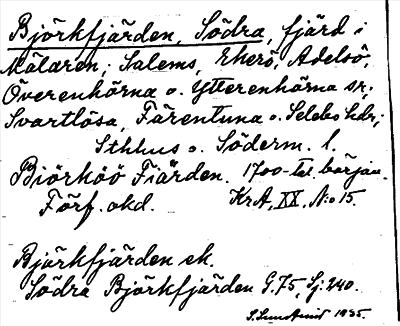 Björkfjärden, Södra, fjärd i
Mälaren; Salems, Ekerö, Adelsö,
Överenhörna o. Ytterenhörna sr,
Svartlösa, Färentuna o. Selebo hdr;
Sthlms o. Söderm. l.
Biörköö Fiärden. 1700-tal. början.
Förf. okd. KrA, XX, N:o 15.
Björkfjärden ek.
Södra Björkfjärden G.75, Sj. 240.
1935.